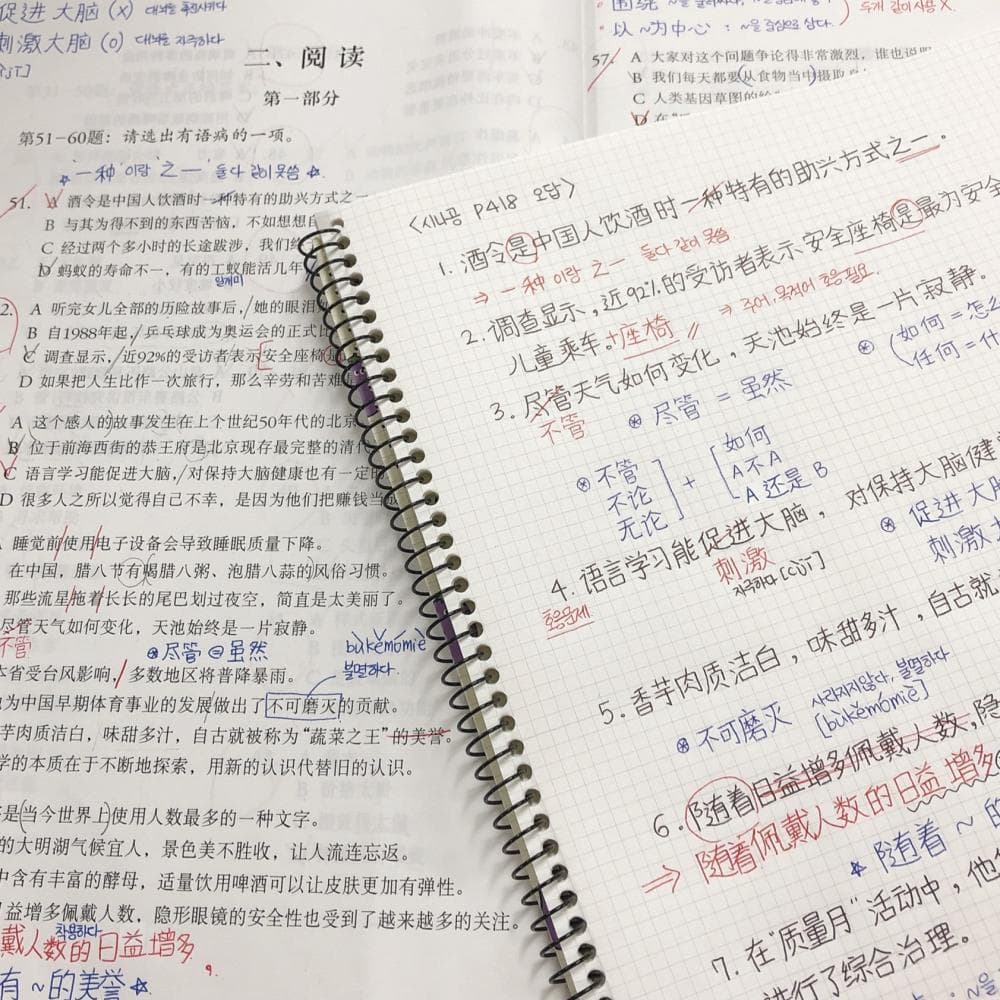 促进 大脑 (X) 대뇌를 촉진시키다
刺激大脑 (O) 대뇌를 자극하다
二、阅 读
第一部分
第51-60题：请选出有语病的一项。
☆ 一种 이랑 之一 둘다 같이 못씀 ☆
51. A 酒令是中国人饮酒时一种特有的助兴方式之一
B 与其为得不到的东西苦恼，不如想想自
C 经过两个多小时的长途跋涉，我们终
D 蚂蚁的寿命不一，有的工蚁能活几年
일개미
2. A 听完女儿全部的历险故事后，她的眼泪
B 自1988年起，乒乓球成为奥运会的正式比
C 调查显示，近92%的受访者表示安全座椅是
D 如果把人生比作一次旅行，那么辛劳和苦难
A 这个感人的故事发生在上个世纪50年代的北京
B 位于前海西街的恭王府是北京现存最完整的清代
C 语言学习能促进大脑，对保持大脑健康也有一定的
D 很多人之所以觉得自己不幸，是因为他们把赚钱当成
睡觉前使用电子设备会导致睡眠质量下降。
在中国，腊八节有喝腊八粥、泡腊八蒜的风俗习惯。
那些流星拖着长长的尾巴划过夜空，简直是太美丽了。
尽管天气如何变化，天池始终是一片寂静。
不管
⊛尽管 = 虽然
bùkěmómiè
불멸하다.
本省受台风影响，多数地区将普降暴雨。
为中国早期体育事业的发展做出了不可磨灭的贡献。
芋肉质洁白，味甜多汁，自古就被称为“蔬菜之王”的美誉。
学的本质在于不断地探索，用新的认识代替旧的认识。
是当今世界上使用人数最多的一种文字。
的大明湖气候宜人，景色美不胜收，让人流连忘返。
中含有丰富的酵母，适量饮用啤酒可以让皮肤更加有弹性。
益增多佩戴人数，隐形眼镜的安全性也受到了越来越多的关注。
착용하다
戴人数的日益增多
有 ~的美誉 ☆
围绕
두개 같이 사용 X.
以 ~为中心 : ~을 중심으로 삼다.
57. A 大家对这个问题争论得非常激烈，谁也说
B 我们每天都要从食物当中摄取
C 人类基因草图的绘
D 在
<시나공 P418 오답>
1. 酒令是中国人饮酒时一种特有的助兴方式之一.
⇒ 一种 이랑 之一 둘다 같이 못씀
2. 调查显示, 近92%的受访者表示安全座椅是最为安全
儿童乘车. +座椅 // → 주어, 목적어 호응 필요.
3. 尽管天气如何变化, 天池始终是一片寂静.
不管
⊛ 尽管 = 虽然
⊛ (如何 = 怎么
任何 = 什
⊛ 不管
不论
无论
+
如何
A不A
A还是B
4. 语言学习能促进大脑, 对保持大脑健
호응문제
刺激
자극하다 [cìjī]
⊛ 促进大脑
刺激大
5. 香芋肉质洁白, 味甜多汁, 自古就
⊛ 不可磨灭
사라지지않다, 불멸하다
[bùkěmómiè]
6. 随着日益增多佩戴人数, 隐
⇒ 随着佩戴人数的日益增多
☆ 随着 ~ 的
7. 在“质量月”活动中, 他
进行了综合治理.